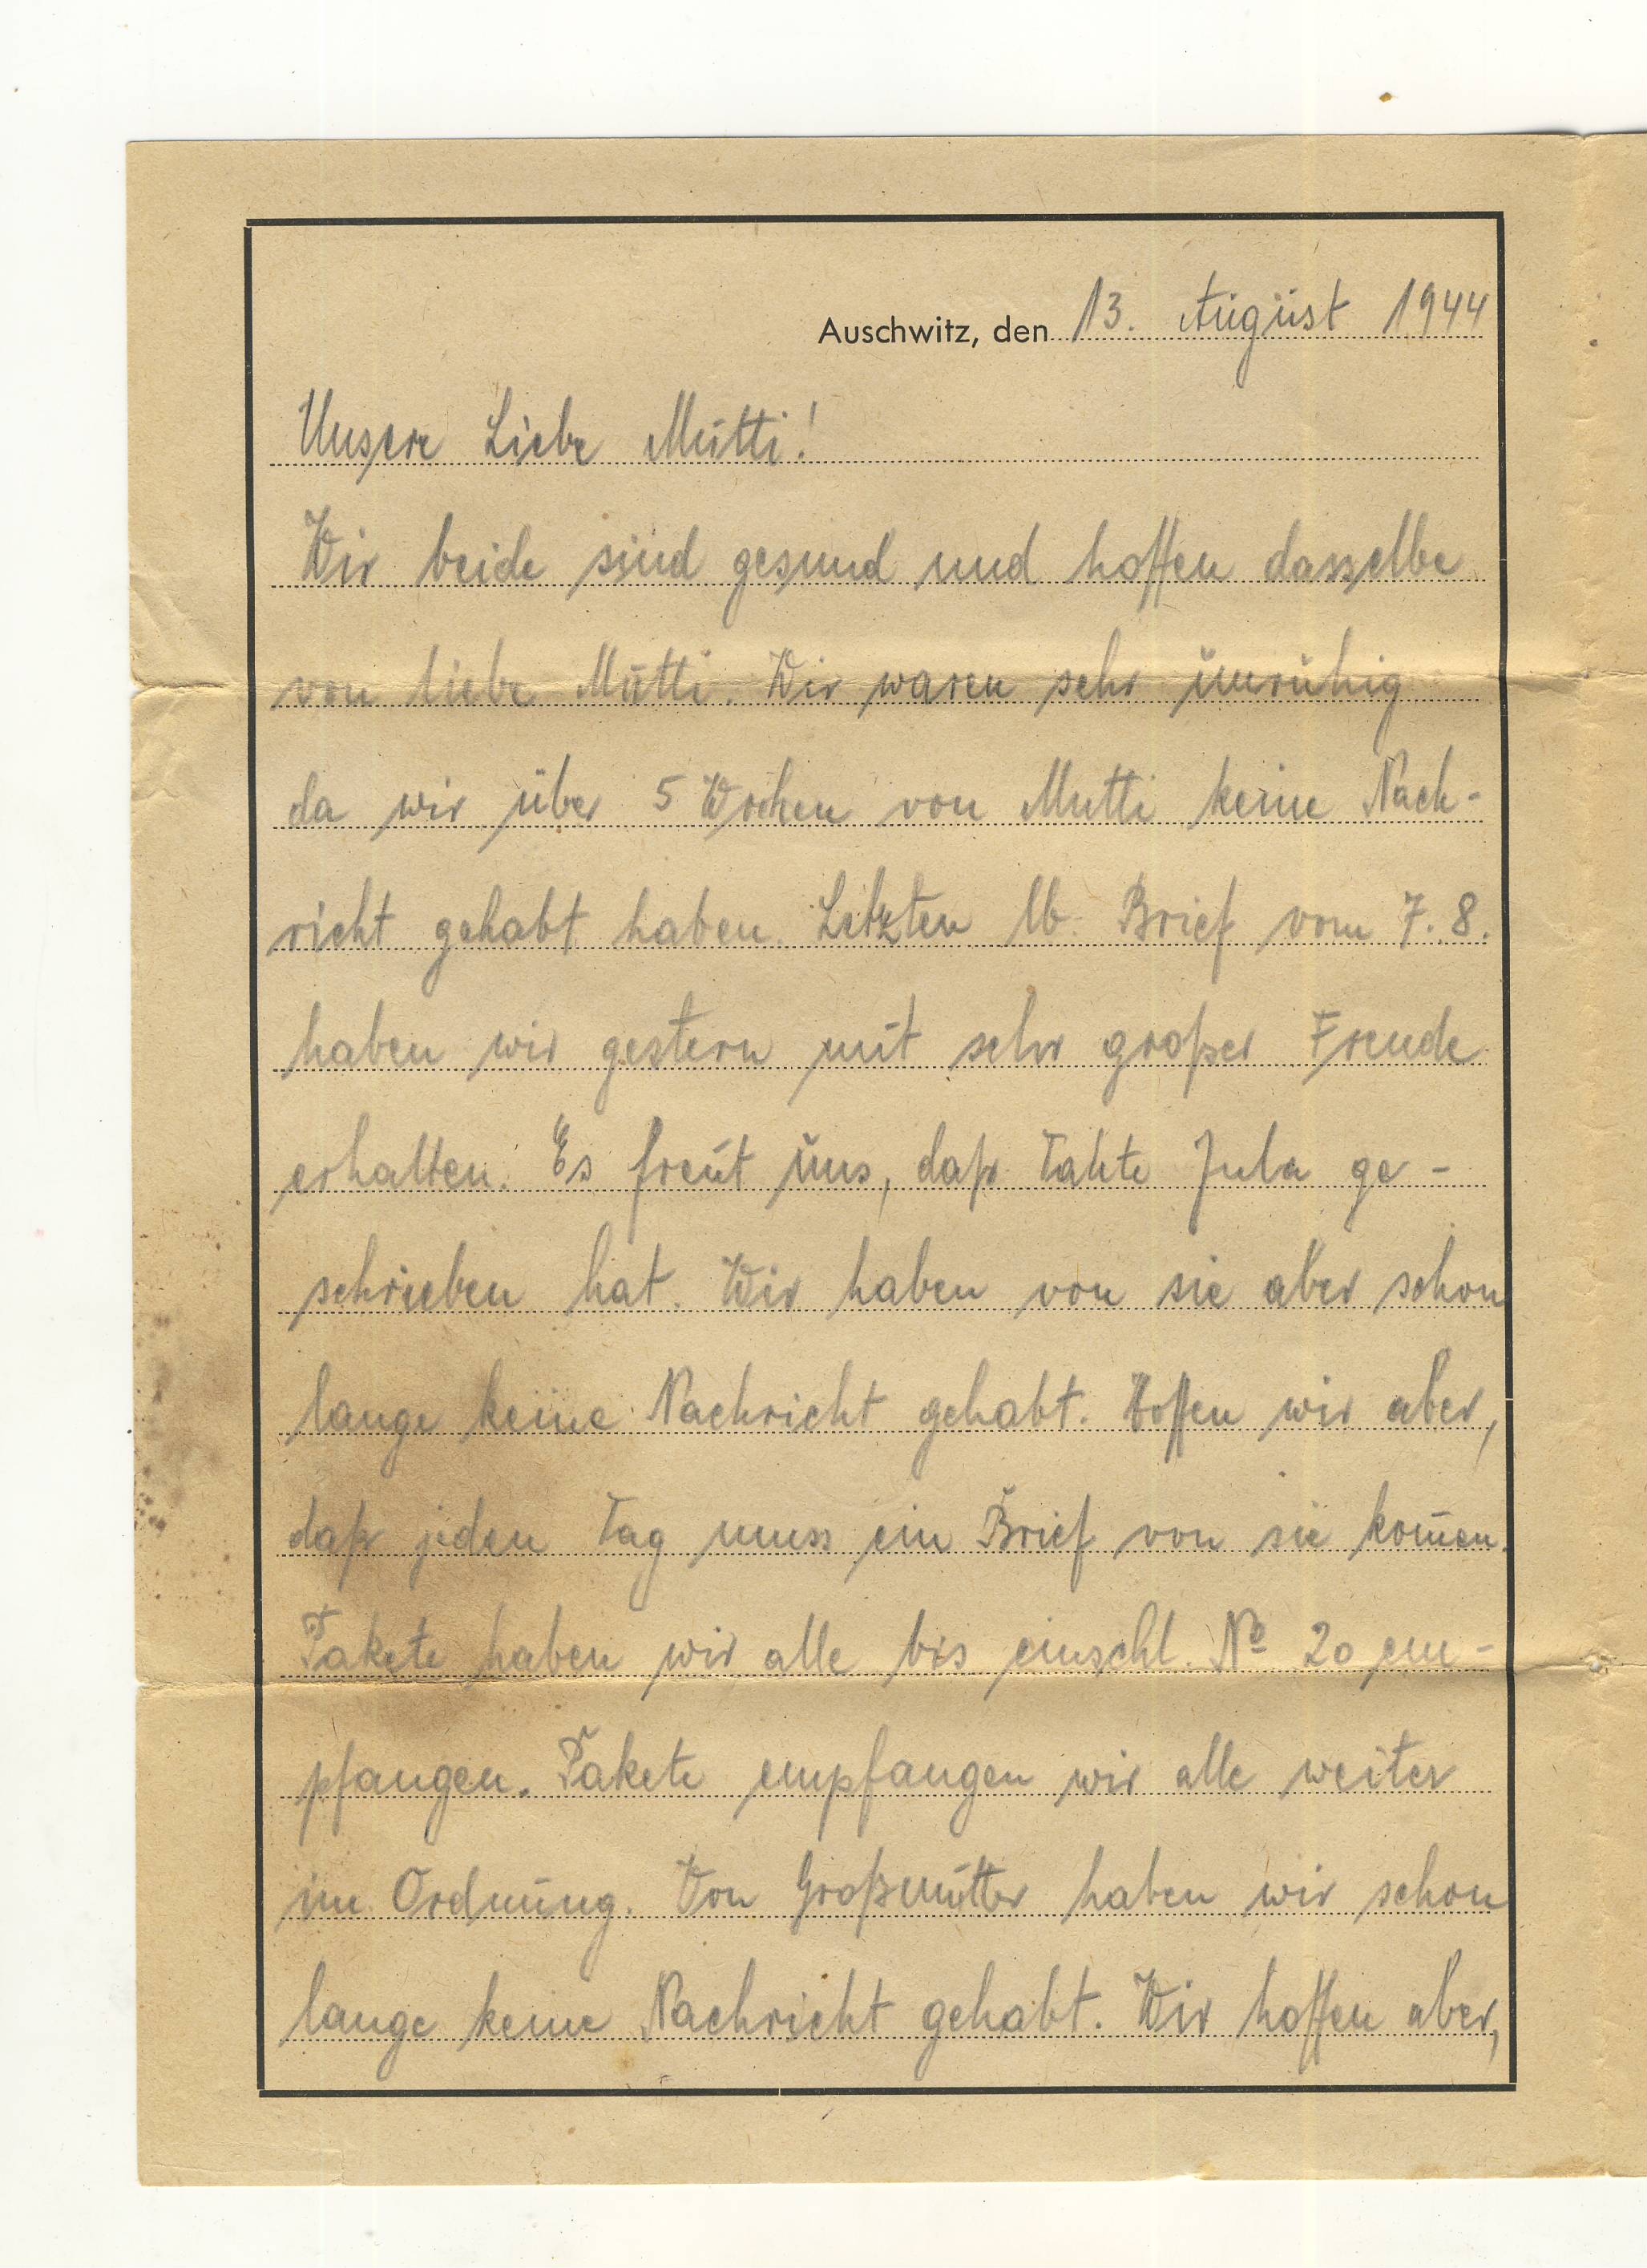 Auschwitz, den 13. August 1944
Unsere Liebe Mutti!
Wir beide sind gesund und hoffen dasselbe
von liebe Mutti. Wir waren sehr unruhig
da wir über 5 Wochen von Mutti keine Nach-
richt gehabt haben. Letzten lb. Brief vom 7.8.
haben wir gestern mit sehr großer Freude
erhalten. Es freut uns, daß Tante Jula ge-
schrieben hat. Wir haben von sie aber schon
lange keine Nachricht gehabt. Hoffen wir aber,
daß jeden Tag muss ein Brief von sie kom̅en.
Pakete haben wir alle bis einschl. № 20 em-
pfangen. Pakete empfangen wir alle weiter
im Ordnung. Von Großmutter haben wir schon
lange keine Nachricht gehabt. Wir hoffen aber,